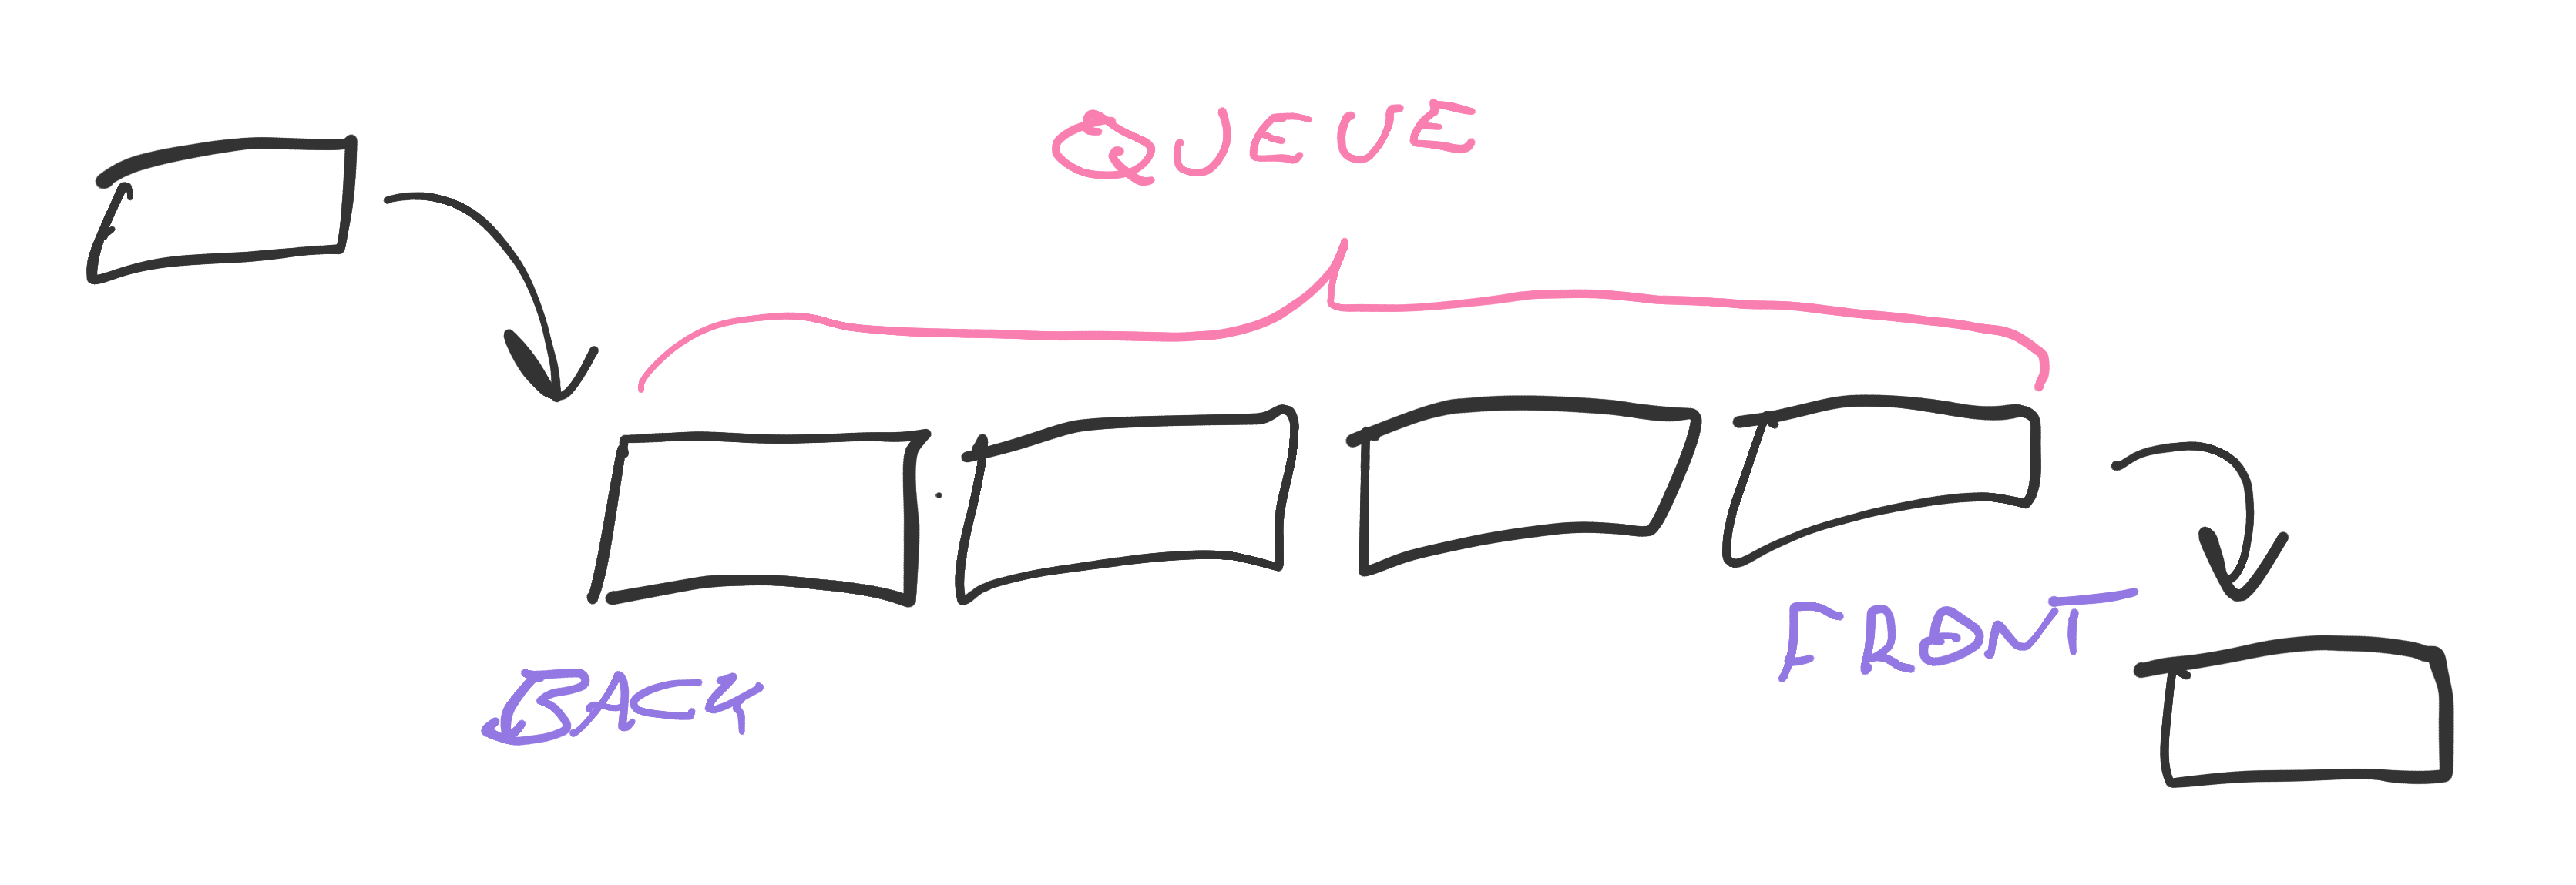 QUEUE
BACK
FRONT